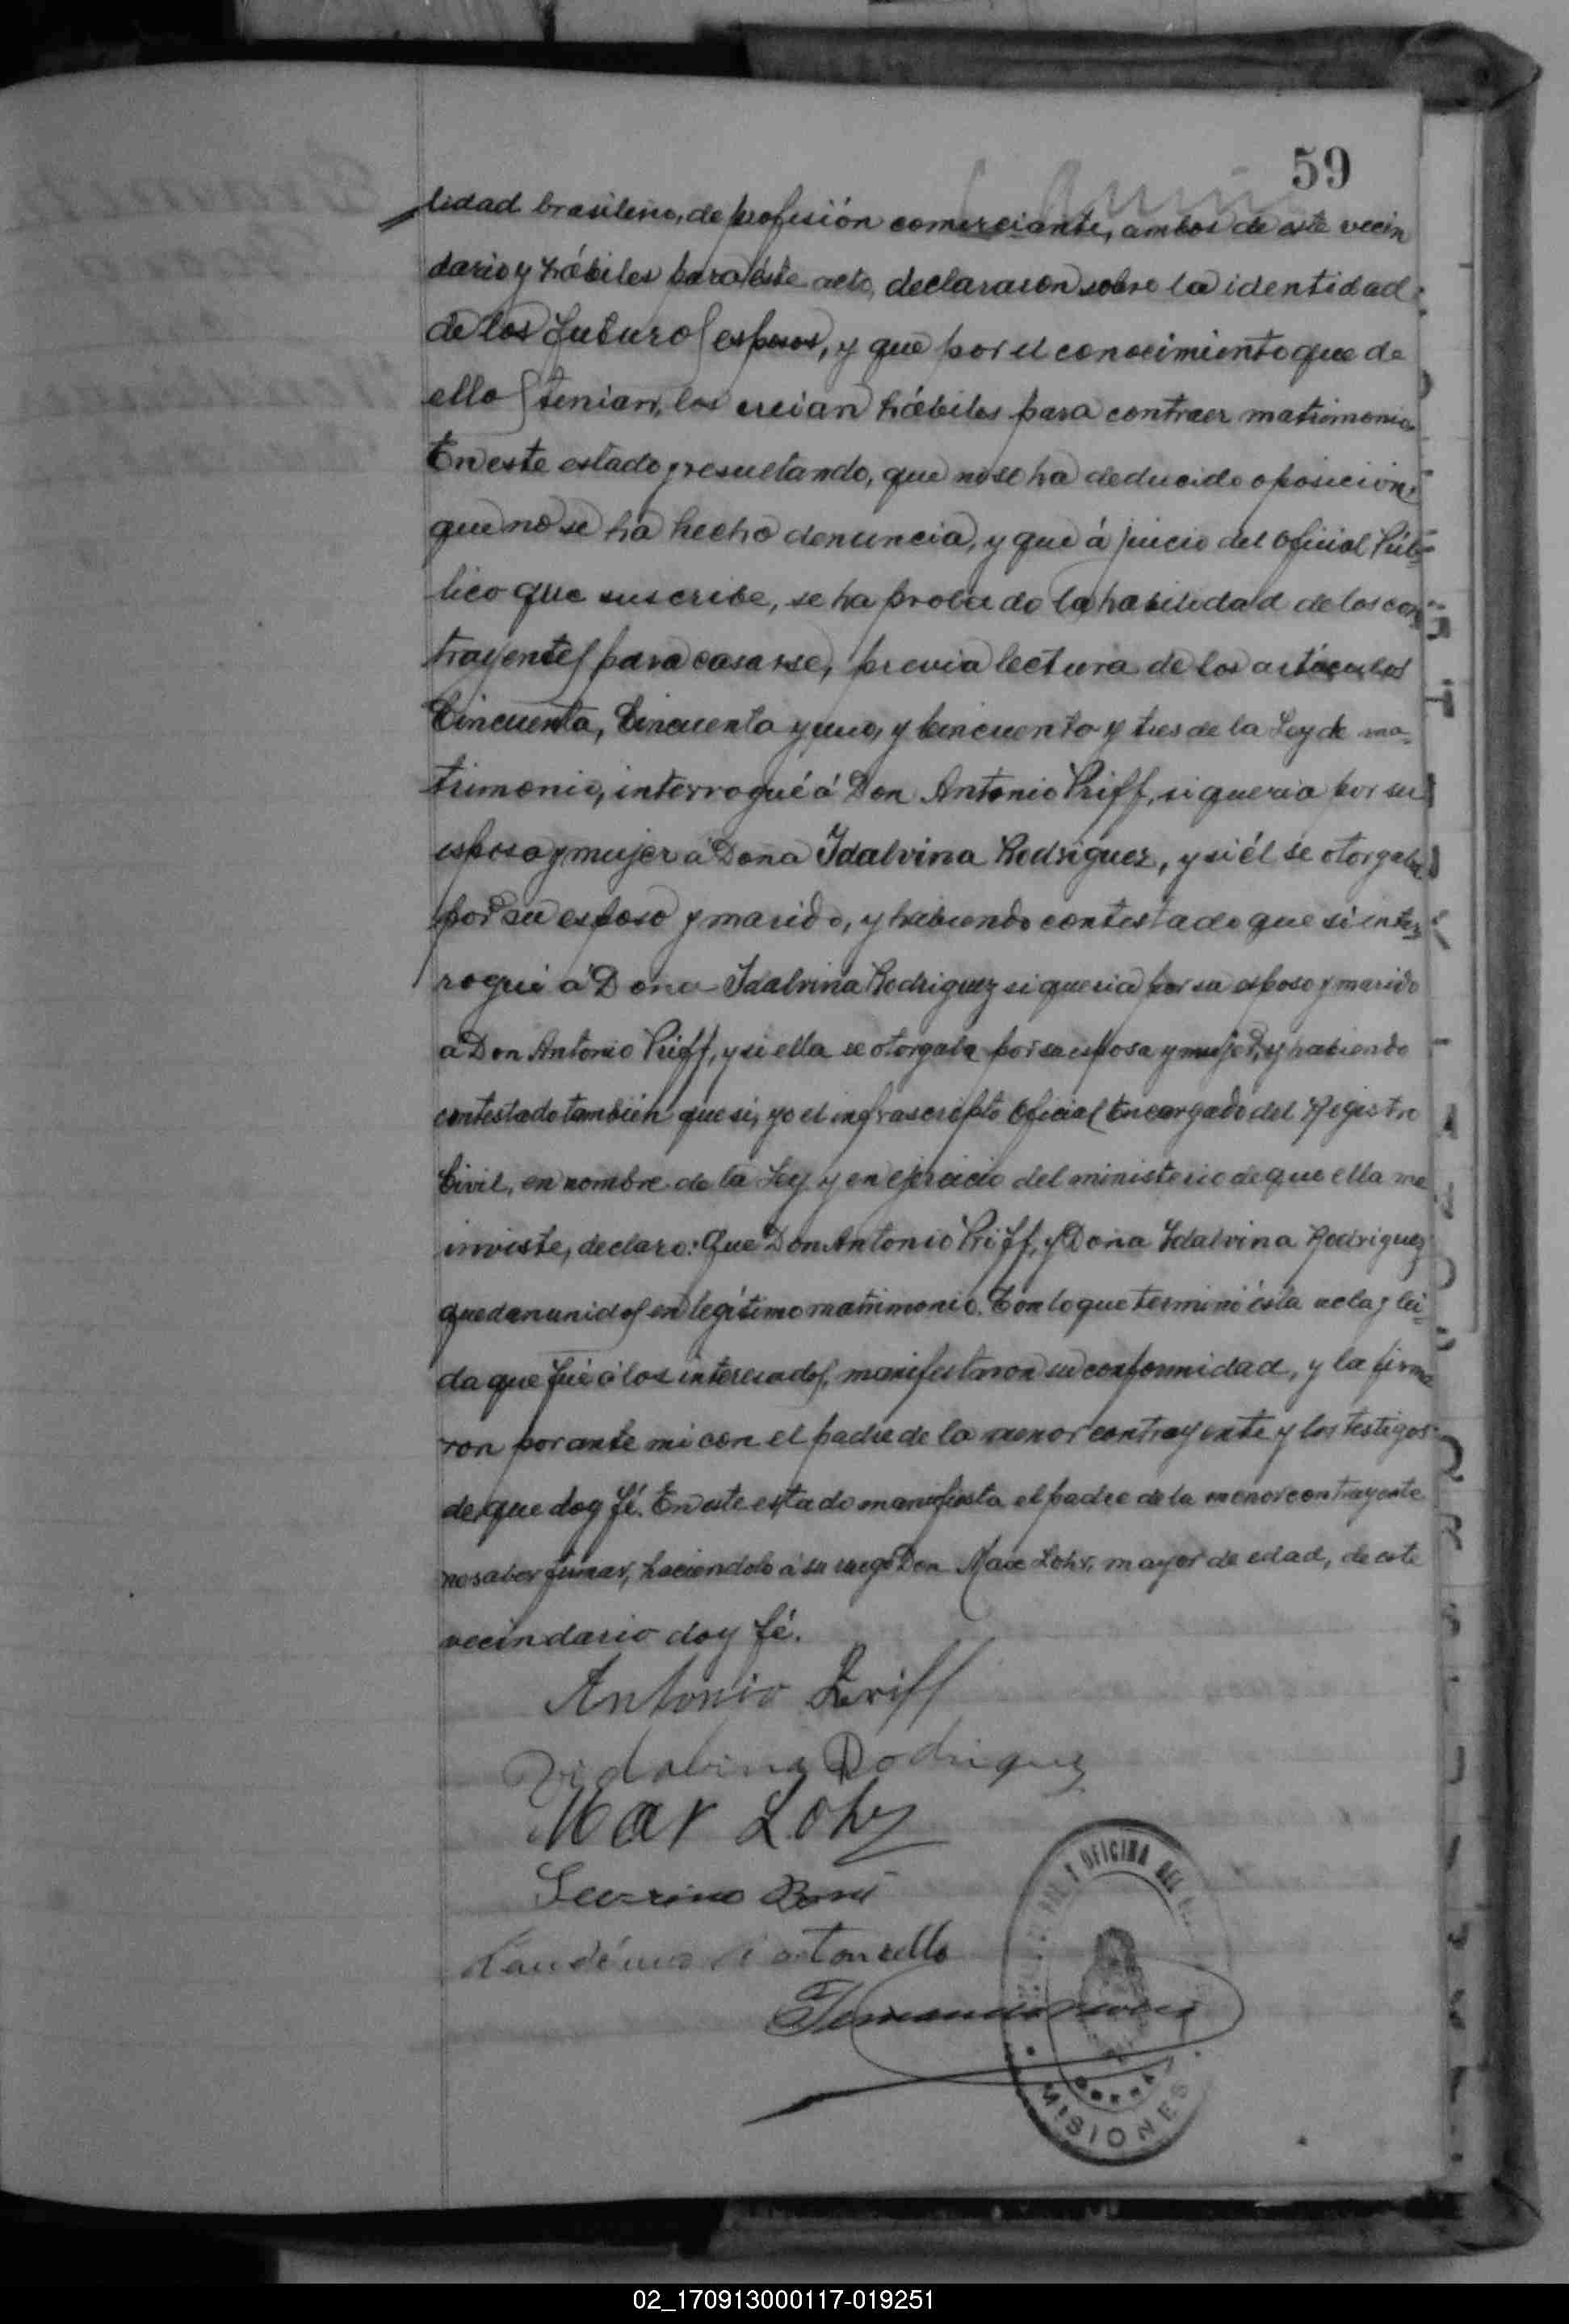 59
lidad brasileno, de profesión comerciante, ambos de este vecin
dario y hábiles para éste acto, declararon sobre la identidad
de los futuros esposos, y que por el conocimiento que de
ellos tenian, los creian hábiles para contraer matrimonio.
En este estado y resultando, que no se ha deducido oposicion,
que no se ha hecho denuncia, y que á juicio del Oficial Púb-
lico que suscribe, se ha probado la habilidad de los con
trayentes para casarse, previa lectura de los artículos
Cincuenta, Cincuenta y uno, y Cincuenta y tres de la Ley de ma-
trimonio, interrogué á Don Antonio Priff, si queria por su
esposa y mujer á Dona Idalvina Rodriguez, y si él se otorgaba
por su esposo y marido, y habiendo contestado que si inter
rogué á Dona Idalvina Rodriguez si queria por su esposo y marido
a Don Antonio Priff, y si ella se otorgaba por su esposa y mujer, y habiendo
contestado también que si, yo el infrascripto Oficial Encargado del Registro
Civil, en nombre de la Ley y en ejercicio del ministerio de que ella me
inviste, declaro: Que Don Antonio Priff, y Doña Idalvina Rodriguez
quedan unidos en legítimo matrimonio. Con lo que terminó ésta acta y lei-
da que fué á los interesados, manifestaron su conformidad, y la firma
ron por ante mi con el padre de la menor contrayente y los testigos
de que doy fé. En este estado manifiesta el padre de la menor contrayente
no saber firmar, haciendolo á su ruego Don Max Lohr, mayor de edad, de este
vecindario doy fé.
Antonio Priff
Vidalvina Rodriguez
Max Lohr
OFICINA DEL
MISIONES